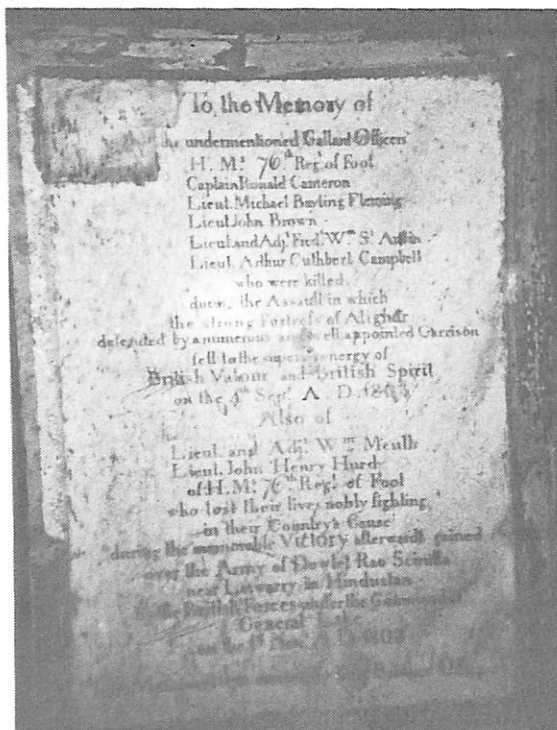 To the Memory of
the undermentioned Gallant Officers
H. M.s 76th Regt. of Foot
Captain Ronald Cameron
Lieut. Michael Bayling Fleming
Lieut John Brown
Lieut and Adjt. Fredk. Wm. St. Aubin
Lieut. Arthur Cuthbert Campbell
who were killed
during the Assault in which
the strong Fortress of Alighur
defended by a numerous and well appointed Garrison
fell to the superior energy of
British Valour and British Spirit
on the 4th Sept. A. D. 1803
Also of
Lieut. and Adjt. Wm. Meulh
Lieut. John Henry Hurd
of H. M.s 76th Regt. of Foot
who lost their lives nobly fighting
in their Country's Cause
during the memorable Victory afterwards gained
over the Army of Dowlet Rao Scindia
near Laswarry in Hindustan
by the British Forces under the Command of
General Lake
on the 1st Nov. A. D. 1803